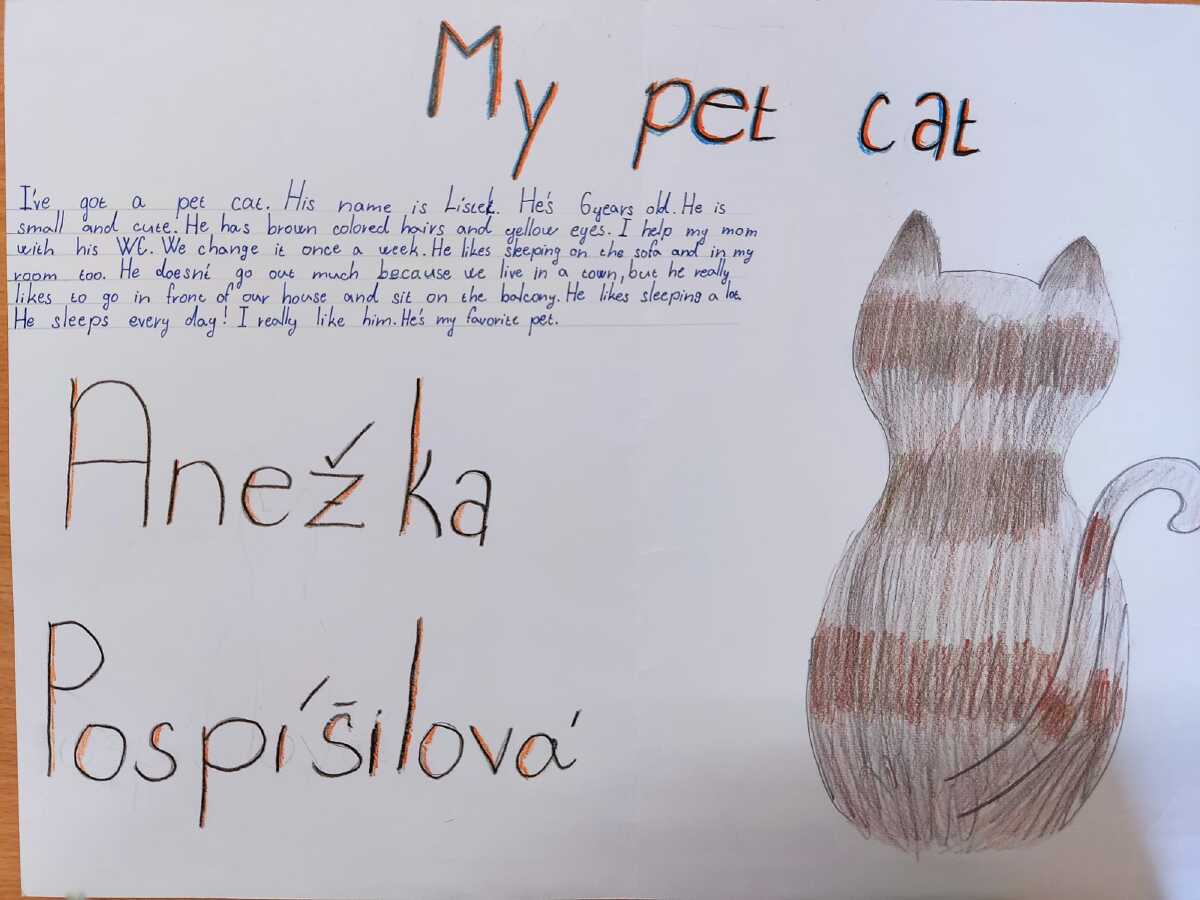 My pet cat
I've got a pet cat. His name is Lístek. He's 6years old. He is
small and cute. He has brown colored hairs and yellow eyes. I help my mom
with his WC. We change it once a week. He likes sleeping on the sofa and in my
room too. He doesn't go out much because we live in a town, but he really
likes to go in front of our house and sit on the balcony. He likes sleeping a lot.
He sleeps every day! I really like him. He's my favorite pet.
Anežka
Pospíšilová